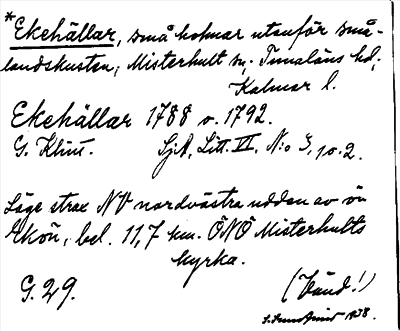 *Ekehällar, små holmar utanför små-
landskusten; Misterhult sn; Tunaläns hd;
Kalmar l.
Ekehällar 1788 o. 1792.
G. Klint. SjA, Litt. VI, N:o 3, 10.2.
Läge strax NV nordvästra udden av ön
Ekön, bel. 11,7 km. ÖNÖ Misterhults
kyrka.
G. 29. (Vänd!)
1938.